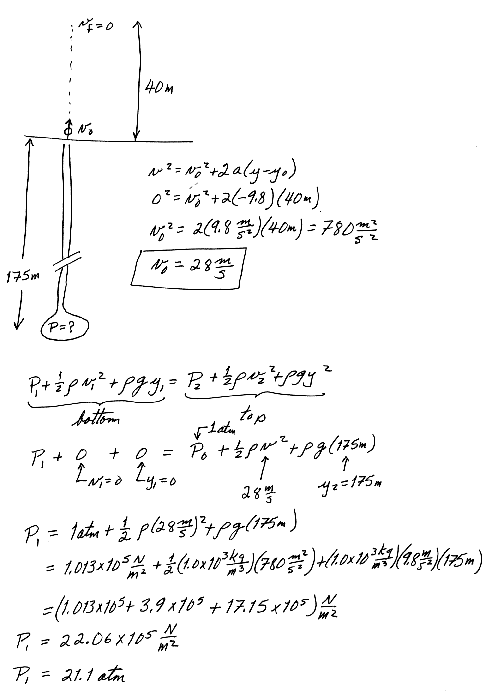 v_f = 0
40m
v₀
v² = v₀² + 2a(y-y₀)
0² = v₀² + 2(-9.8)(40m)
v₀² = 2(9.8 m/s²)(40m) = 780 m²/s²
v₀ = 28 m/s
175m
P=?
P₁ + ½ρv₁² + ρgy₁ = P₂ + ½ρv₂² + ρgy²
bottom top
1atm
P₁ + 0 + 0 = P₀ + ½ρv² + ρg(175m)
v₁=0 y₁=0 28 m/s y₂=175m
P₁ = 1atm + ½ρ(28 m/s)² + ρg(175m)
= 1.013×10⁵ N/m² + ½(1.0×10³ kg/m³)(780 m²/s²) + (1.0×10³ kg/m³)(9.8 m/s²)(175m)
= (1.013×10⁵ + 3.9×10⁵ + 17.15×10⁵) N/m²
P₁ = 22.06×10⁵ N/m²
P₁ = 21.1 atm